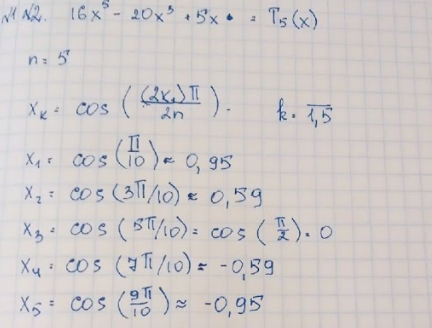 №1 №2. 16x⁵ - 20x³ + 5x = T₅(x)
n = 5
x_k = cos((2k.)π/2n). k = 1,5
x₁ = cos(π/10) ≈ 0,95
x₂ = cos(3π/10) ≈ 0,59
x₃ = cos(5π/10) = cos(π/2) = 0
x₄ = cos(7π/10) ≈ -0,59
x₅ = cos(9π/10) ≈ -0,95